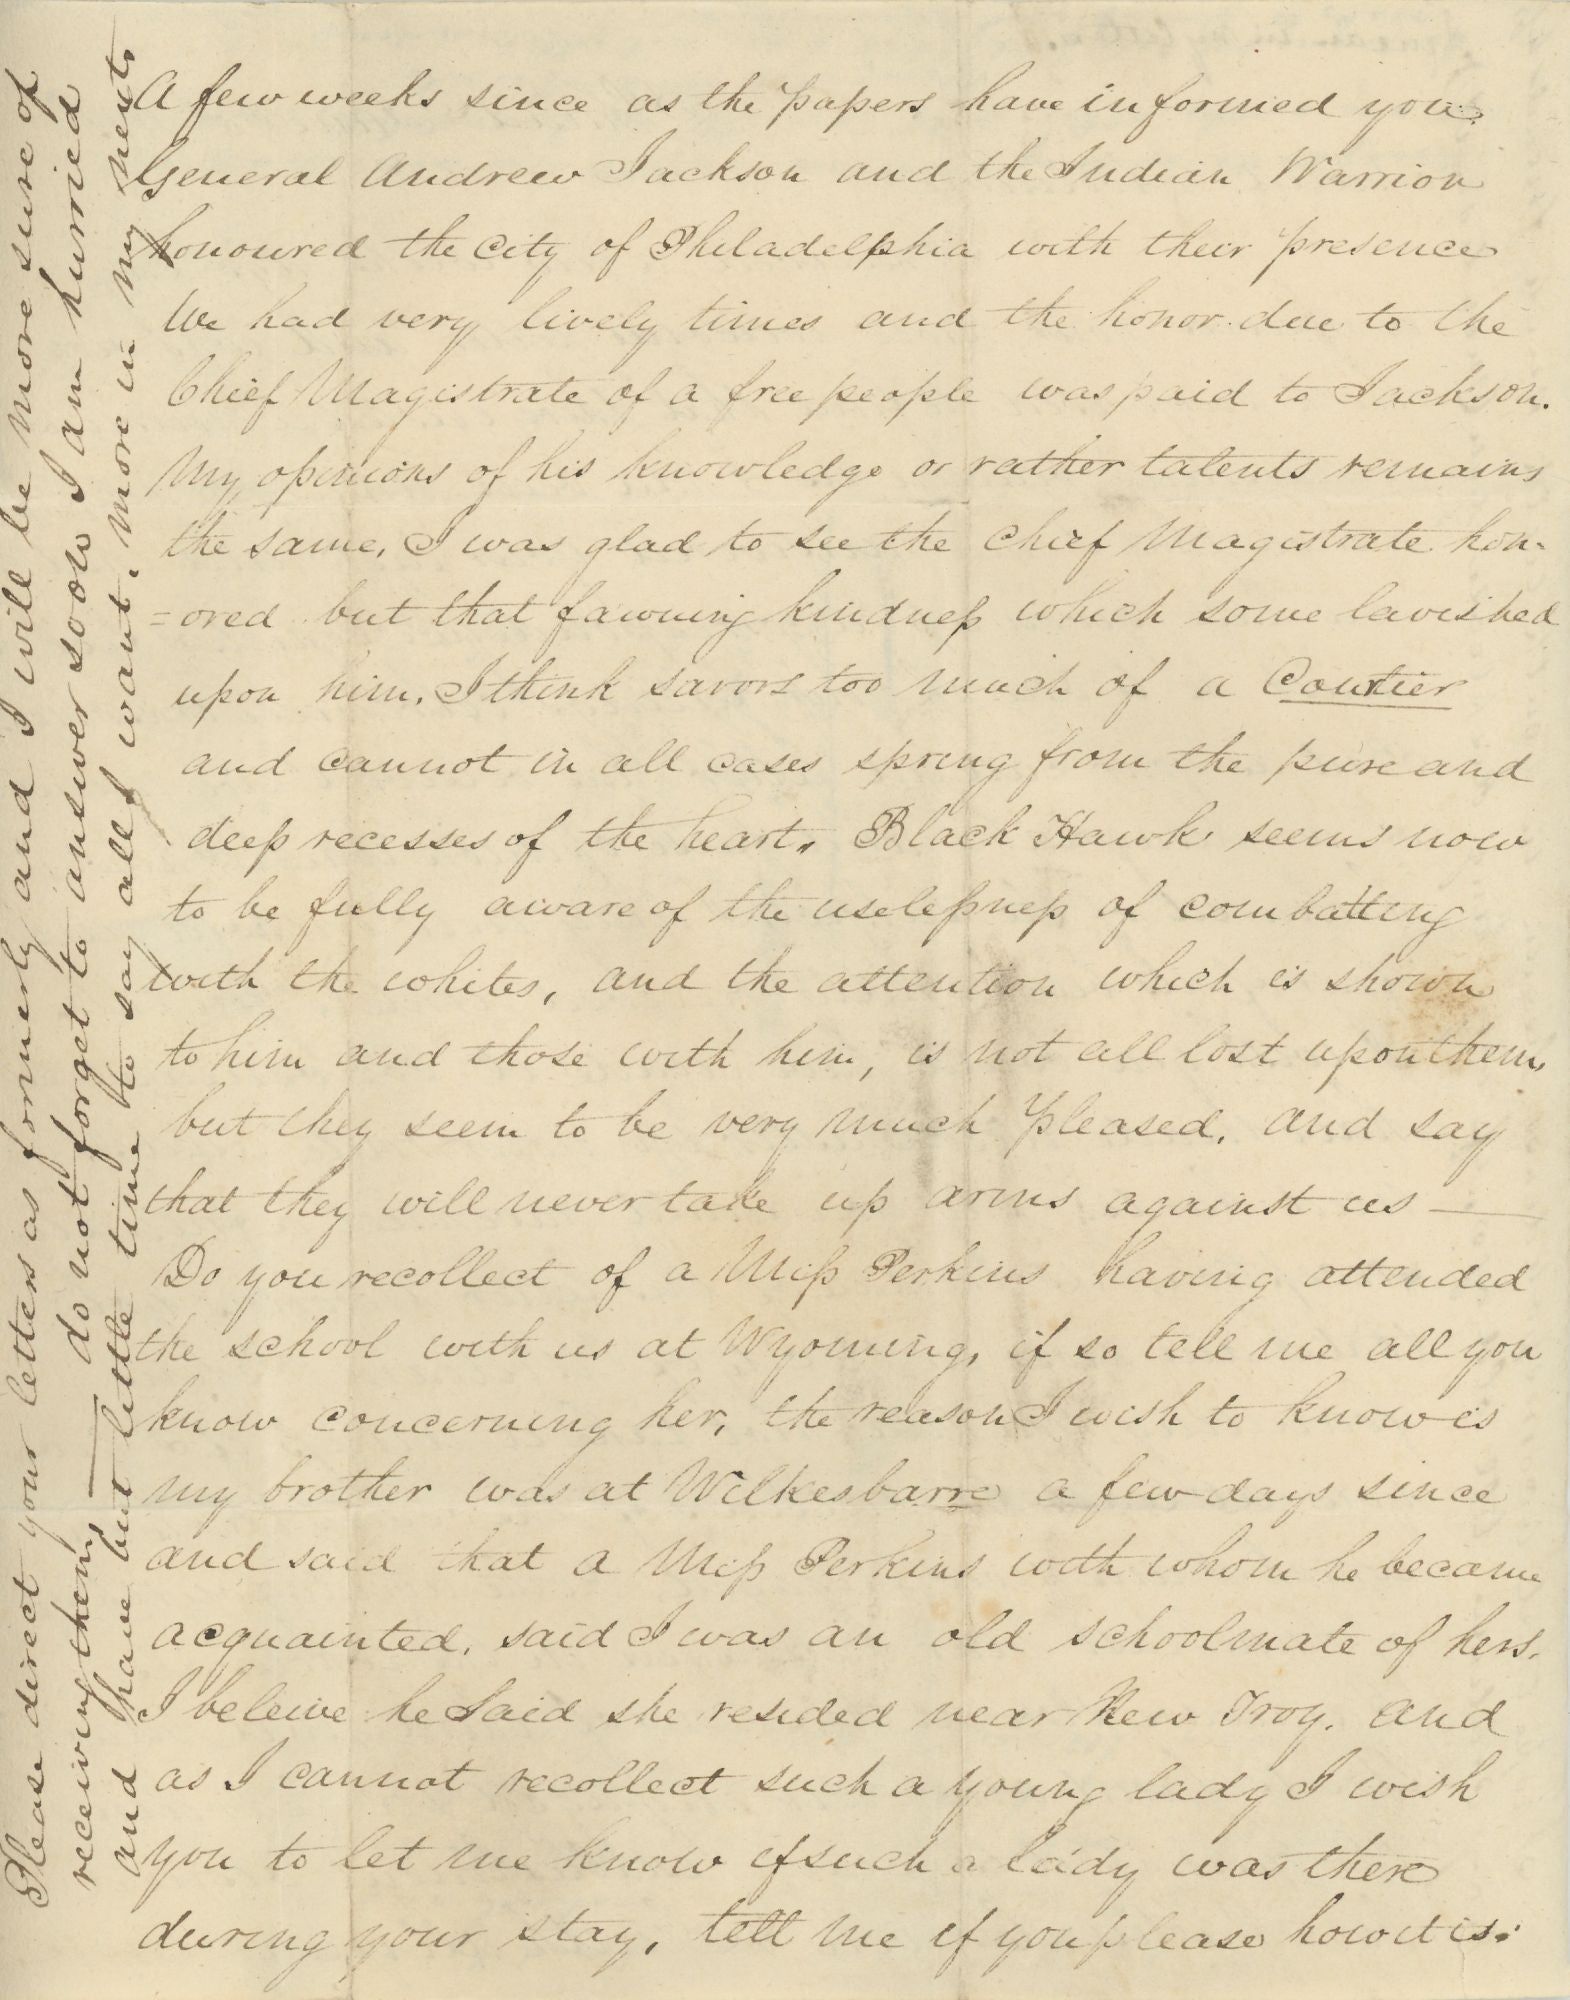 A few weeks since as the papers have informed you.
General Andrew Jackson and the Indian Warrior
honoured the City of Philadelphia with their presence
We had very lively times and the honor due to the
Chief Magistrate of a free people was paid to Jackson.
My opinions of his knowledge or rather talents remains
the same, I was glad to see the Chief Magistrate hon-
=ored but that fawning kindness which some lavished
upon him, I think savors too much of a Courtier
and cannot in all cases spring from the pure and
deep recesses of the heart. Black Hawk seems now
to be fully aware of the uselessness of combatting
with the whites, and the attention which is shown
to him and those with him, is not all lost upon them,
but they seem to be very much pleased, and say
that they will never take up arms against us —
Do you recollect of a Miss Perkins having attended
the school with us at Wyoming, if so tell me all you
know concerning her, the reason I wish to know is
my brother was at Wilkesbarre a few days since
and said that a Miss Perkins with whom he became
acquainted, said I was an old schoolmate of hers.
I beleive he said she resided near New Troy, and
as I cannot recollect such a young lady I wish
you to let me know if such a lady was there
during your stay, tell me if you please how it is.
Please direct your letters as formerly and I will be more sure of
receiving them — do not forget to answer soon I am hurried
and have but little time to say all I want, more in my next.